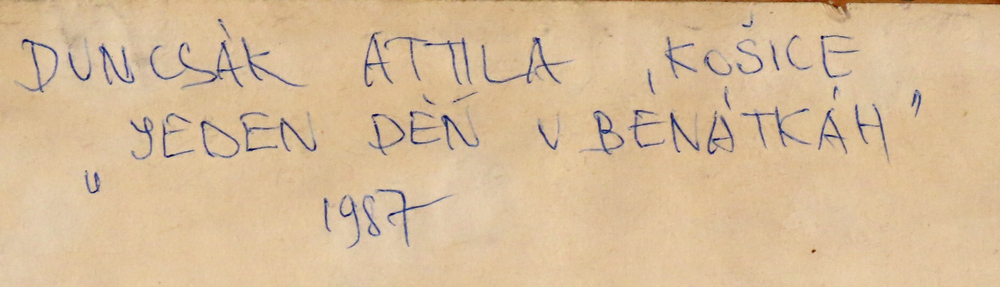 DUNCSÁK ATTILA, KOŠICE
"JEDEN DĚŇ V BÉNÁTKÁH"
1987